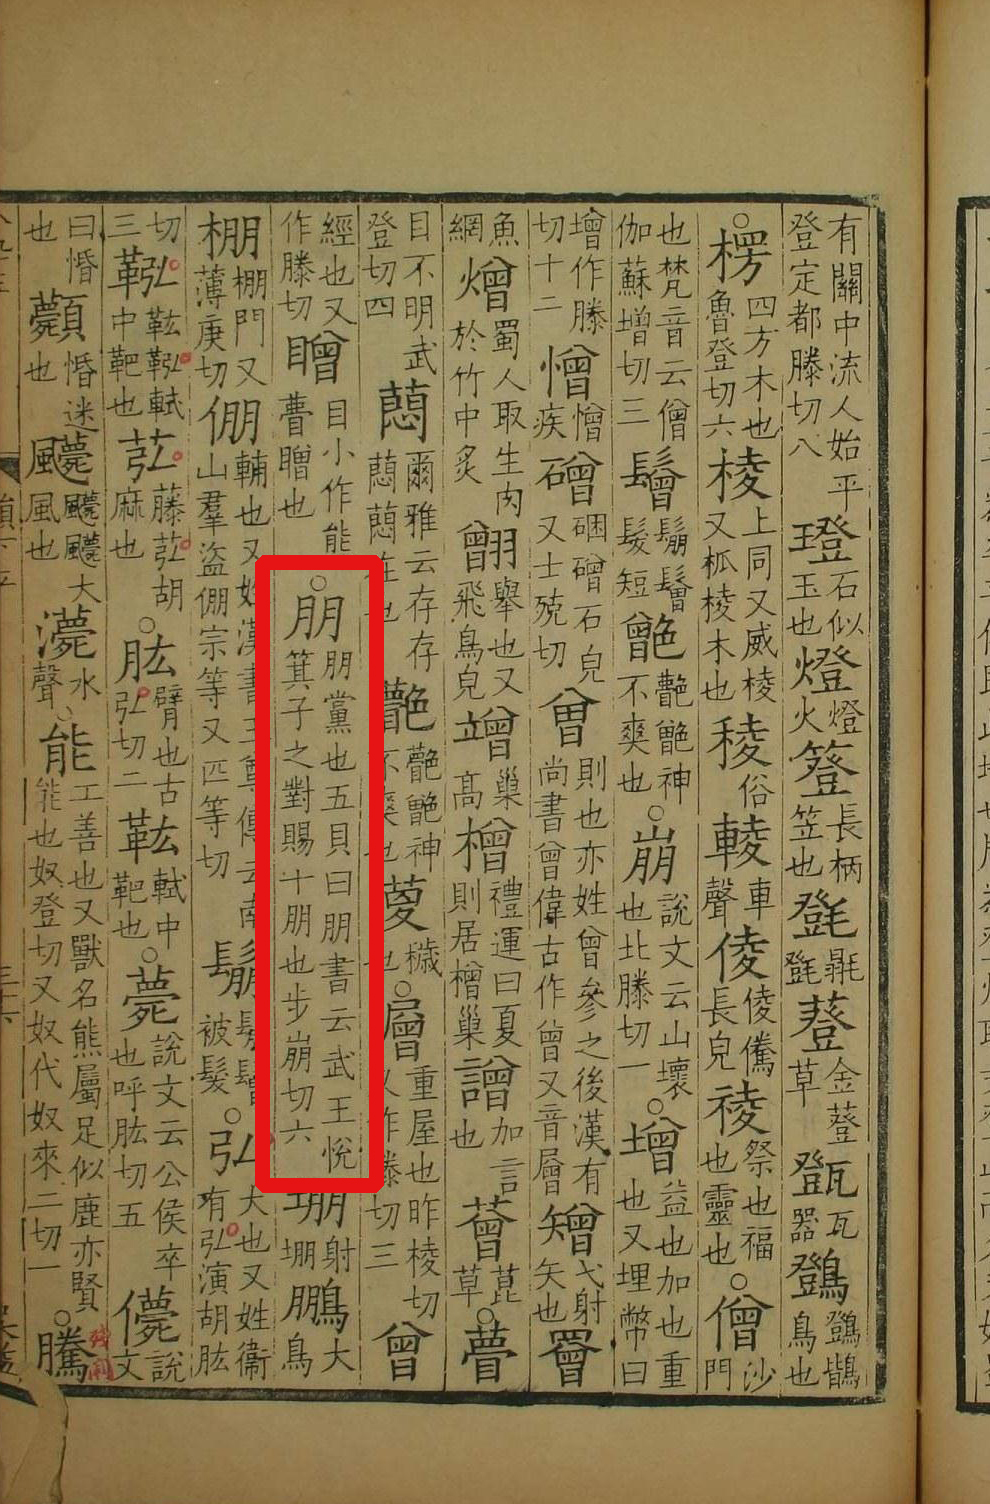 有關中流人始平登定都滕切八璒石似玉也燈燈火簦長柄笠也㲪毾㲪䔲金䔲草瓦器鳥也
楞四方木也魯登切六棱上同又威棱又柧棱木也稜俗輘車聲倰倰儯長皃祾祭也福也靈也○僧沙門
也梵音云僧伽蘇增切三鬙鬅鬙髮短䒏䒐䒏神不爽也○崩說文云山壞也北滕切一○增益也加也重也又埋幣曰
增作滕切十二憎憎疾磳硱磳石皃又士兢切曾則也亦姓曾參之後漢有尚書曾偉古作曾又音層矰弋射矢也罾
魚網熷蜀人取生肉於竹中炙䎖舉也又飛鳥皃竲巢高橧禮運曰夏則居橧巢譄加言也草○瞢
目不明武登切四蕄爾雅云存存蕄蕄在也䒐䒐䒏神不爽也穢也○層重屋也昨棱切三曾
經也又作滕切䁬目小作態瞢䁬也○朋朋黨也五貝曰朋書云武王悅箕子之對賜十朋也步崩切六堋射堋鵬大鳥
棚棚門又薄庚切倗輔也又姓漢書王尊傳云南山羣盜倗宗等又匹等切鬅鬅鬙被髮○弘大也又姓衞有弘演胡肱
切三鞃軾中靶也苰藤苰胡麻也○肱臂也古弘切二䡌軾中靶也○薨說文云公侯卒也呼肱切五儚說文
曰惛也顭惛迷也大風也水聲○能工善也又獸名熊屬足似鹿亦賢能也奴登切又奴代奴來二切一○騰